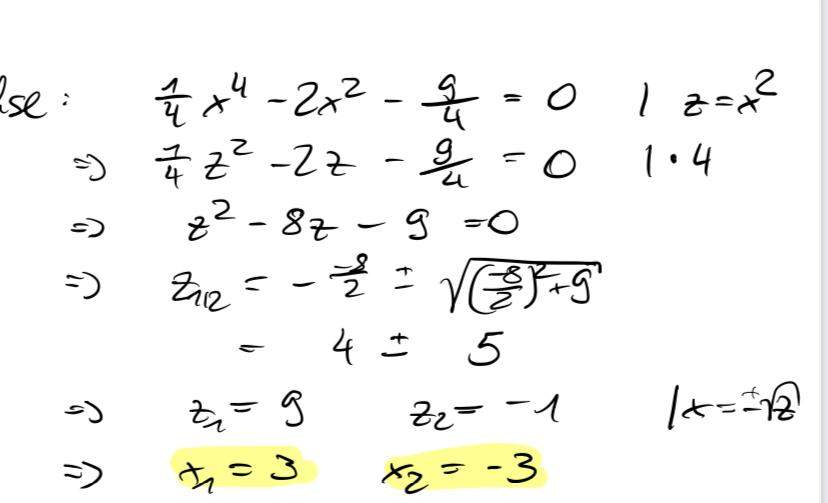 lse : 1/4 x⁴ - 2x² - 9/4 = 0 | z = x²
=> 1/4 z² - 2z - 9/4 = 0 | · 4
=> z² - 8z - 9 = 0
=> z₁,₂ = - -8/2 ± √((-8/2)² + 9)
= 4 ± 5
=> z₁ = 9 z₂ = -1 | x = ±√z
=> x₁ = 3 x₂ = -3